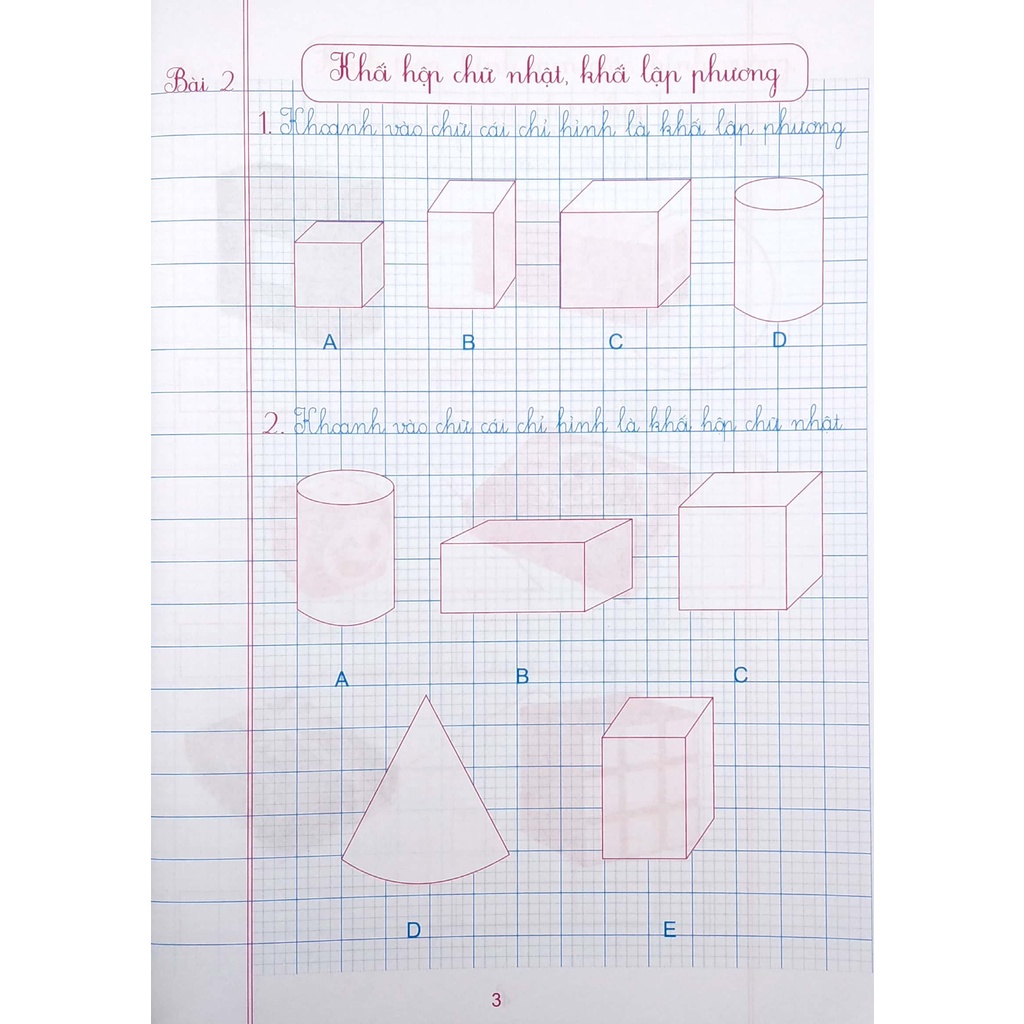 Bài 2
Khối hộp chữ nhật, khối lập phương
1. Khoanh vào chữ cái chỉ hình là khối lập phương
A B C D
2. Khoanh vào chữ cái chỉ hình là khối hộp chữ nhật
A B C
D E
3